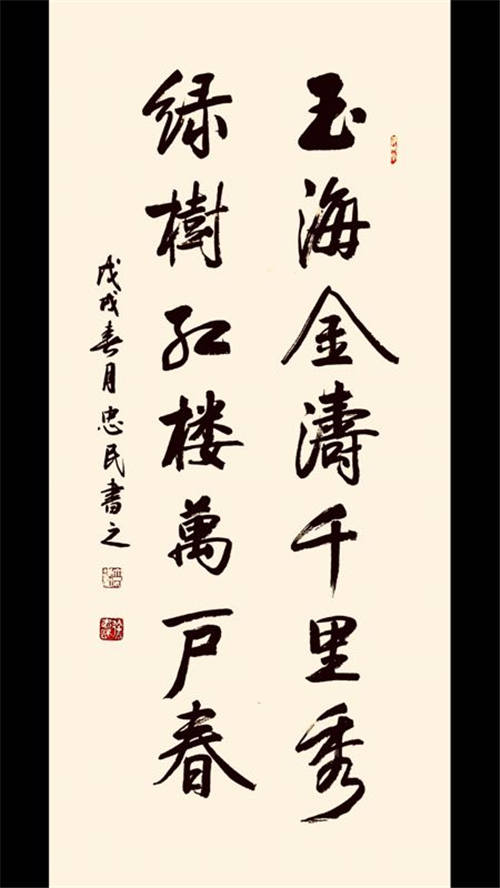 玉海金濤千里秀
绿樹红楼萬户春
戊戌春月忠民書之